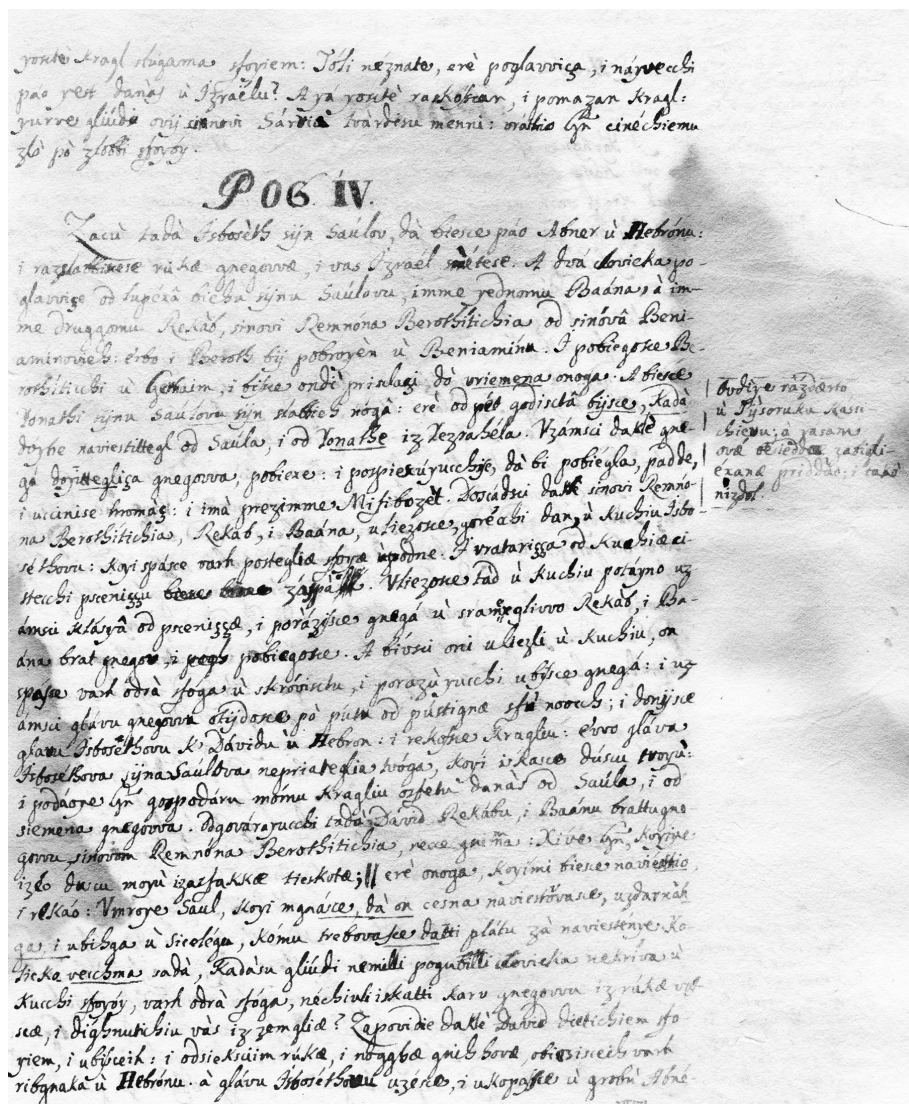 yoscté Kragl slúgama sfoyiem: Tóli néznate, erè poglavviça, i náyvecchi
páo yest danàs ù Izraëlu? A yá yosctè raskoscan, i pomazan Kragl:
yurve gliúdi ovij sinovi Sárviæ tvàrdisu menni: vratio Gñ cinéchiemu
zlò pò zlobbi sfoyoy.
POG. IV.
Zacù tadà Isbosèth sijn Saúlov, dà biesce páo Abner ù Hebrónu:
i razslabbisese rúkæ gnegovvæ, i vas Izraél smétese. A dvá clovicka po-
glavviçe od lupéxâ bieha sijnu Saúlovu; imme yednomu Baána, à im-
me druggomu Rekáb, sinovi Remnóna Berothítichia od sinóvâ Beni-
aminovieh: érbo i Beroth bij pobroyèn ù Beniamínu. I pobiegosce Be-
rothítichi ù Gethaim; i bisce ondì prislaçi, dò vriemena onoga. A biesce
Yonathi sijnu Saúlovu sijn slabbieh nógâ: erè od pét godisctâ bijsce, Kadà
doyde naviestittegl od Saúla, i od Yonathe iz Yezrahéla. Vzámsci daklè gne-
gá doyitegliça gnegovva, pobiexe: i pospiexúyucchise, dà bi pobiégla, padde,
i uccinise hromaç: i imà prezimme Mifibozèt. Doscádsci daklè sinovi Remno-
na Berothítichia, Rekáb, i Baána, uliezosce, goréchi dan, ù Kuchiu Isbo-
séthovu: Koyi spásce varh postegliæ sfoyæ ù podne. I vratariçça od Kuchiæ ci-
stecchi psceniçu záspa. Vliezosce tad ù Kuchiu potáyno uz
ámsci klásyâ od psceniççæ, i porázijsce gnegá ù srameglivvo Rekàb, i Ba-
ána brat gnegov, i pobiegosce. A bívsci oni uliezli ù Kuchiú, on
spásce varh odrà sfóga ù skróvisctu, i porazùyucchi ubijsce gnegá: i uz
ámsci glávu gnegovvu otijdosce pò pútu od pústignæ sfú nooch; i donijsce
glavu Isboséthovu K Dávidu ù Hebron: i rekosce Kragliú: évvo gláva
Isboséthova sijna Saúlova nepriateglia tvóga, Koyi iskasce dúscu tvoyù:
i podáonе Gñ gospodáru mómu Kragliu osfetu danàs od Saúla, i od
siemena gnegovva. Odgovárarucchi tadà David Rekábu, i Baánu brattu gne-
govvu, sinovom Remnóna Berothítichia, rece gnima: Xive Gñ, Koyiye
izéo dúscu moyù iza sfakkæ tieskotæ; erè onoga, Koyimi biesce naviestio,
i rekáo: Vmroye Saul, Koyi mgnásce, dà on cesna naviestòvasce, uzdarxàh
ga, i ubihga ù Sicelégu, Kómu trebovasce datti plátu zà naviestényе. Ko-
licko vecchma sadà, Kadàsu gliúdi nemilli pogubilli clovicka nekríva ù
Kucchi sfoyóy, varh odrà sfóga, néchiuli iskatti karv gnegovvu iz rúkæ va-
scæ, i dighnutichiu vàs iz zemgliæ? Zapovidie daklè David dietichiem sfo-
yiem, i ubijsceih: i odsieksciim rúkæ, i nogghæ gnihhovæ, obiesisceih varh
ribgnaka ù Hebrónu. à glávu Isboséthovu uzésce, i ukopasce ù grobu Abné-
ovdiye ràzdærto
ù Tijsoruku